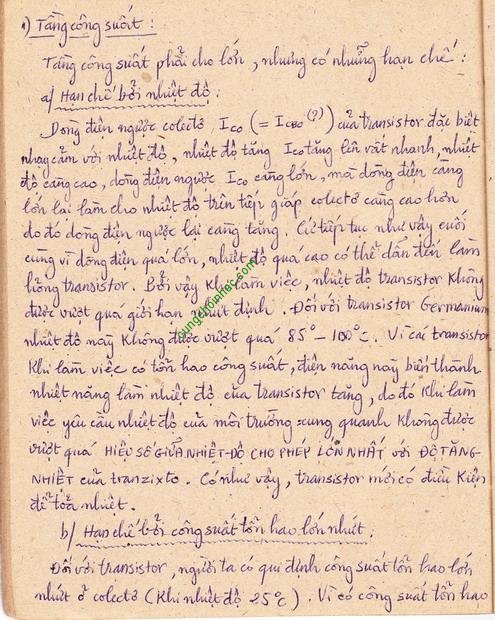 1) Tầng công suất :
Tầng công suất phải cho lớn, nhưng có những hạn chế :
a/ Hạn chế bởi nhiệt độ :
Dòng điện ngược colectơ Ico (= ICBO (?)) của transistor đặc biệt
nhạy cảm với nhiệt độ, nhiệt độ tăng Ico tăng lên rất nhanh, nhiệt
độ càng cao, dòng điện ngược Ico càng lớn, mà dòng điện càng
lớn lại làm cho nhiệt độ trên tiếp giáp colectơ càng cao hơn
do đó dòng điện ngược lại càng tăng. Cứ tiếp tục như vậy cuối
cùng vì dòng điện quá lớn, nhiệt độ quá cao có thể dẫn đến làm
hỏng transistor. Bởi vậy khi làm việc, nhiệt độ transistor không
được vượt quá giới hạn nhất định. Đối với transistor Germanium
nhiệt độ này không được vượt quá 85° – 100°C. Vì cái transistor
khi làm việc có tổn hao công suất, điện năng này biến thành
nhiệt năng làm nhiệt độ của transistor tăng, do đó khi làm
việc yêu cầu nhiệt độ của môi trường xung quanh không được
vượt quá HIỆU SỐ GIỮA NHIỆT-ĐỘ CHO PHÉP LỚN NHẤT với ĐỘ TĂNG-
NHIỆT của tranzixto. Có như vậy, transistor mới có điều kiện
để tỏa nhiệt.
b/ Hạn chế bởi công suất tổn hao lớn nhất :
Đối với transistor, người ta có qui định công suất tổn hao lớn
nhất ở colectơ (khi nhiệt độ 25°C). Vì có công suất tổn hao